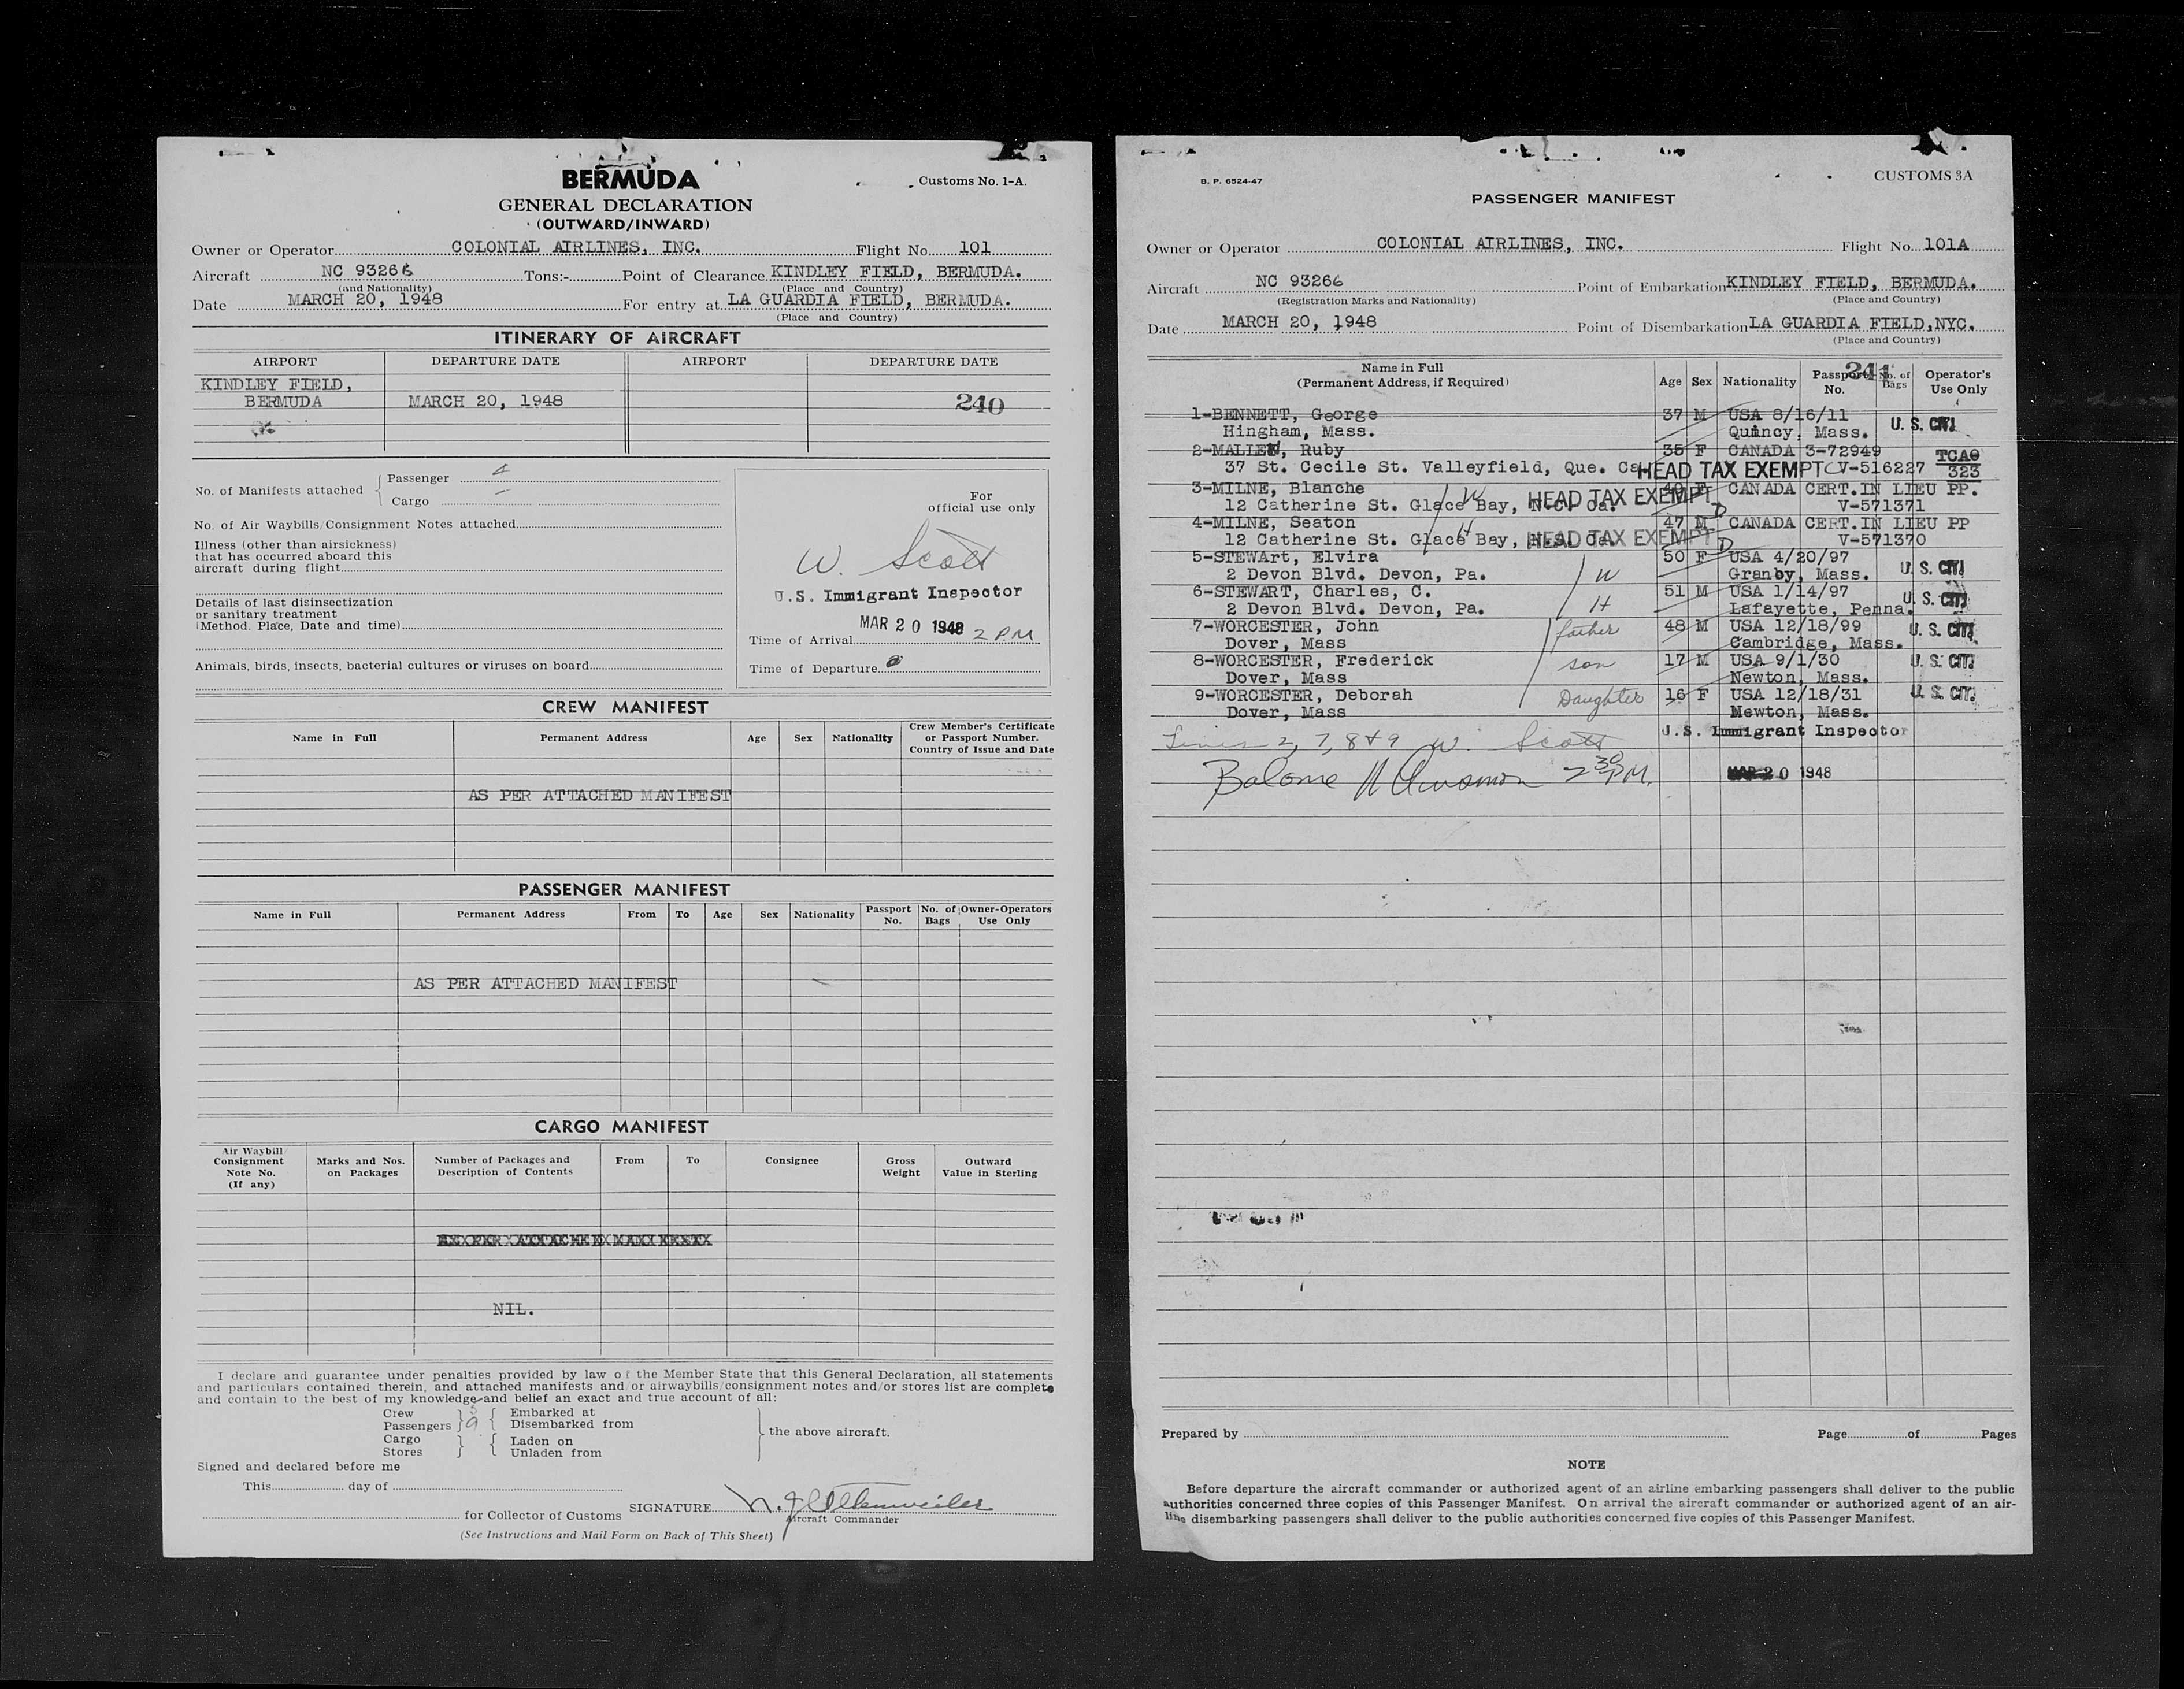 BERMUDA
Customs No. 1-A.
GENERAL DECLARATION
(OUTWARD/INWARD)
Owner or Operator COLONIAL AIRLINES, INC. Flight No. 101
Aircraft NC 93266 Tons:- Point of Clearance KINDLEY FIELD, BERMUDA.
(and Nationality) (Place and Country)
Date MARCH 20, 1948 For entry at LA GUARDIA FIELD, BERMUDA.
(Place and Country)
ITINERARY OF AIRCRAFT
AIRPORT DEPARTURE DATE AIRPORT DEPARTURE DATE
KINDLEY FIELD,
BERMUDA MARCH 20, 1948 240
No. of Manifests attached { Passenger
Cargo -
For
official use only
No. of Air Waybills/Consignment Notes attached
Illness (other than airsickness)
that has occurred aboard this
aircraft during flight
W. Scott
U.S. Immigrant Inspector
Details of last disinsectization
or sanitary treatment
(Method, Place, Date and time)
MAR 20 1948 2 PM
Time of Arrival
Animals, birds, insects, bacterial cultures or viruses on board
Time of Departure
CREW MANIFEST
Name in Full Permanent Address Age Sex Nationality Crew Member's Certificate
or Passport Number.
Country of Issue and Date
AS PER ATTACHED MANIFEST
PASSENGER MANIFEST
Name in Full Permanent Address From To Age Sex Nationality Passport No. No. of Bags Owner-Operators Use Only
AS PER ATTACHED MANIFEST
CARGO MANIFEST
Air Waybill/
Consignment
Note No.
(If any)
Marks and Nos.
on Packages
Number of Packages and
Description of Contents
From To Consignee Gross
Weight
Outward
Value in Sterling
NIL.
I declare and guarantee under penalties provided by law of the Member State that this General Declaration, all statements
and particulars contained therein, and attached manifests and/or airwaybills/consignment notes and/or stores list are complete
and contain to the best of my knowledge and belief an exact and true account of all:
Crew } 5 { Embarked at
Passengers } 9 { Disembarked from
Cargo } { Laden on
Stores } { Unladen from
} the above aircraft.
Signed and declared before me
This day of
for Collector of Customs
SIGNATURE
Aircraft Commander
(See Instructions and Mail Form on Back of This Sheet)
B. P. 6524-47
CUSTOMS 3A
PASSENGER MANIFEST
Owner or Operator COLONIAL AIRLINES, INC. Flight No. 101A
Aircraft NC 93266 Point of Embarkation KINDLEY FIELD, BERMUDA.
(Registration Marks and Nationality) (Place and Country)
Date MARCH 20, 1948 Point of Disembarkation LA GUARDIA FIELD, NYC.
(Place and Country)
241
Name in Full
(Permanent Address, if Required)
Age Sex Nationality Passport No. No. of Bags Operator's Use Only
1-BENNETT, George 37 M USA 8/16/11
Hingham, Mass. Quincy, Mass. U. S. CIT.
2-MALLEN, Ruby 35 F CANADA 3-72949
37 St. Cecile St. Valleyfield, Que. Ca HEAD TAX EXEMPT V-516227 TCA
323
3-MILNE, Blanche W HEAD TAX EXEMPT 49 F CANADA CERT.IN LIEU PP.
12 Catherine St. Glace Bay, D V-571371
4-MILNE, Seaton H 47 M CANADA CERT.IN LIEU PP
12 Catherine St. Glace Bay, HEAD TAX EXEMPT D V-571370
5-STEWArt, Elvira 50 F USA 4/20/97
2 Devon Blvd. Devon, Pa. W Granby, Mass. U. S. CIT.
6-STEWART, Charles, C. 51 M USA 1/14/97
2 Devon Blvd. Devon, Pa. H Lafayette, Penna. U. S. CIT.
7-WORCESTER, John father 48 M USA 12/18/99
Dover, Mass Cambridge, Mass. U. S. CIT.
8-WORCESTER, Frederick son 17 M USA 9/1/30 U. S. CIT.
Dover, Mass Newton, Mass.
9-WORCESTER, Deborah Daughter 16 F USA 12/18/31 U. S. CIT.
Dover, Mass Newton, Mass.
Lines 2, 7, 8 & 9 W. Scott U.S. Immigrant Inspector
2 30 PM. MAR 20 1948
Prepared by Page of Pages
NOTE
Before departure the aircraft commander or authorized agent of an airline embarking passengers shall deliver to the public
authorities concerned three copies of this Passenger Manifest. On arrival the aircraft commander or authorized agent of an air-
line disembarking passengers shall deliver to the public authorities concerned five copies of this Passenger Manifest.